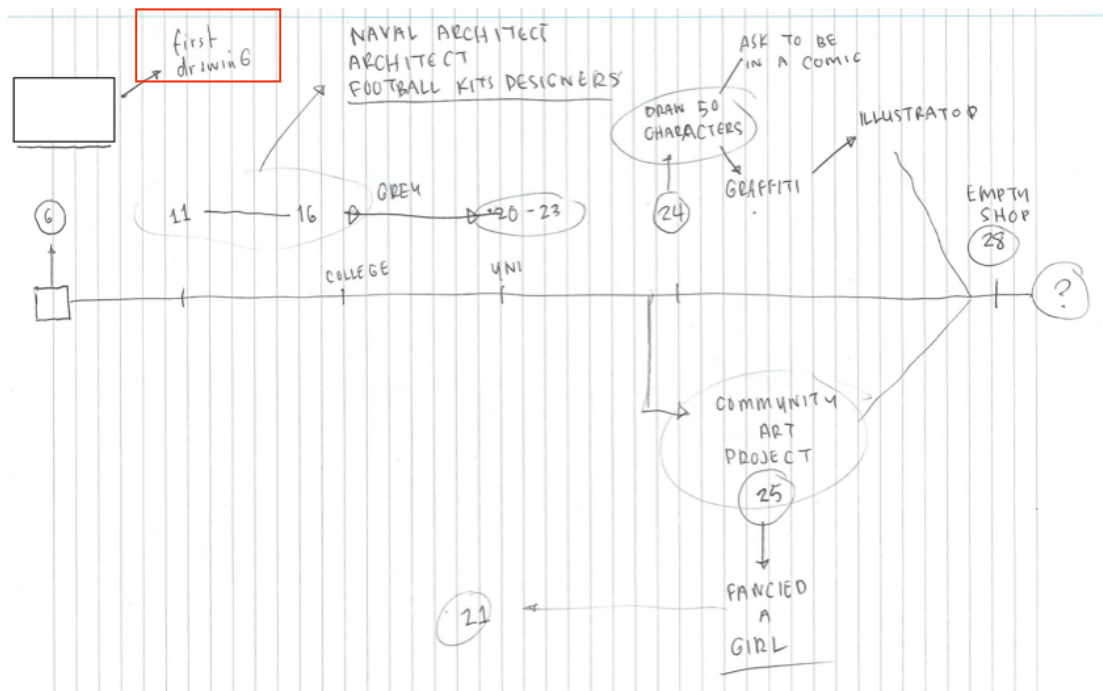 first
drawinG
NAVAL ARCHITECT
ARCHITECT
FOOTBALL KITS DESIGNERS
ASK TO BE
IN A COMIC
DRAW 50
CHARACTERS
ILLUSTRATOR
GRAFFITI
GREY
6
11
16
20-23
24
EMPTY
SHOP
28
COLLEGE
UNI
?
COMMUNITY
ART
PROJECT
25
FANCIED
A
GIRL
21